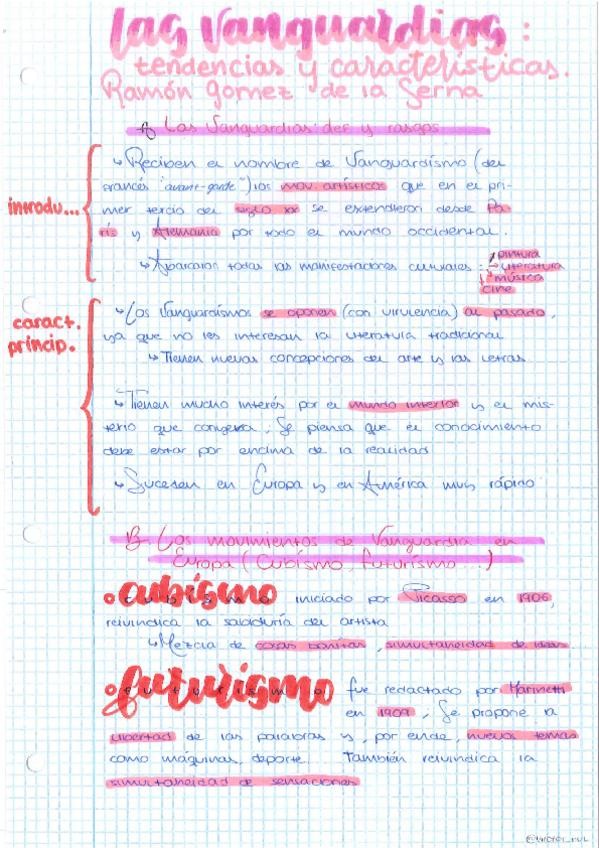 las vanguardias:
tendencias y características.
Ramón Gomez de la Serna
A) Las Vanguardias: def y rasgos
introdu...
↳ Reciben el nombre de Vanguardismo (del
francés "avant-garde") los mov artísticos que en el pri-
mer tercio del siglo XX se extendieron desde Pa-
rís y Alemania por todo el mundo occidental.
↳ Abarcaron todas las manifestaciones culturales:
pintura
literatura
música
cine
caract.
princip.
↳ Los Vanguardismos se oponen (con virulencia) al pasado,
ya que no les interesan la literatura tradicional
↳ Tienen nuevas concepciones del arte y las letras
↳ Tienen mucho interés por el mundo interior y el mis-
terio que conlleva. Se piensa que el conocimiento
debe estar por encima de la realidad
↳ Suceden en Europa y en América muy rápido
B. Los movimientos de Vanguardia en
Europa (Cubismo, futurismo...)
• cubismo iniciado por Picasso en 1906,
reivindica la sabiduría del artista
↳ Mezcla de cosas bonitas, simultaneidad de ideas
• futurismo fue redactado por Marinetti
en 1909. Se propone la
libertad de las palabras y, por ende, nuevos temas
como máquinas, deporte... También reivindica la
simultaneidad de sensaciones